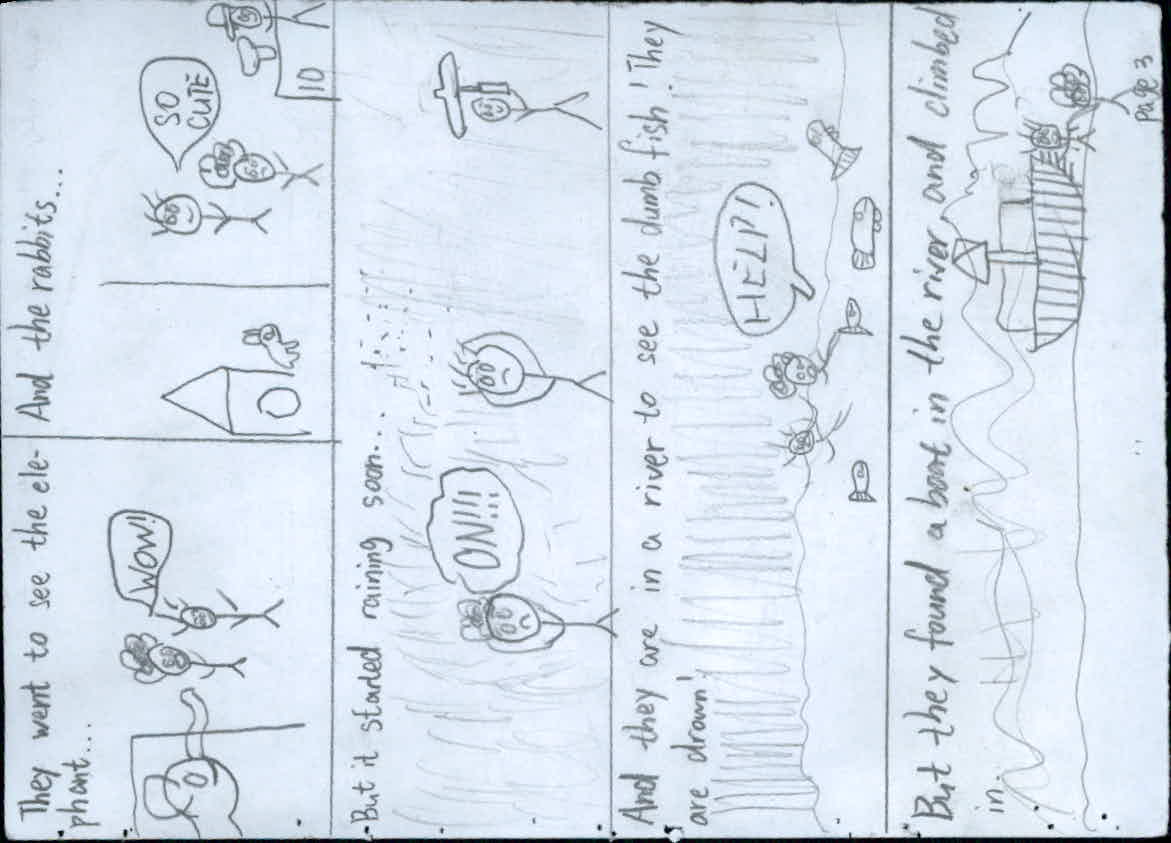 They went to see the ele-
phant...
WOW!
And the rabbits...
SO
CUTE
10
But it started raining soon...
ON!!!
And they are in a river to see the dumb fish! They
are drown!
HELP!
But they found a boat in the river, and climbed
in.
page 3